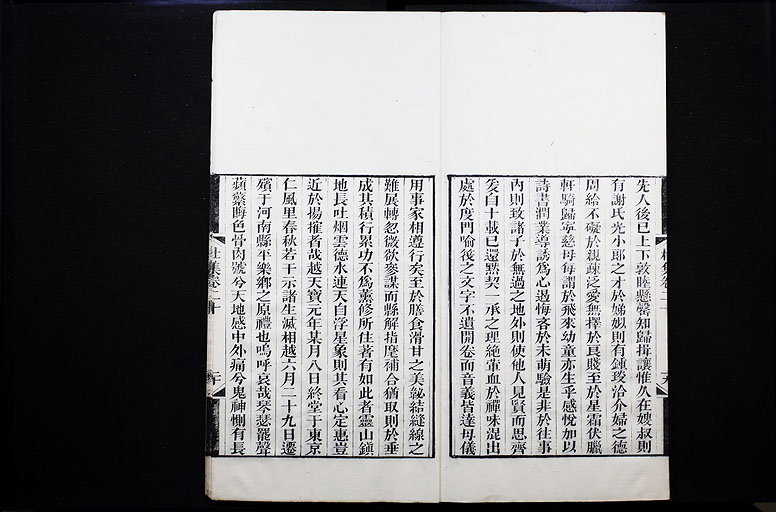 先人後已上下敦睦懸罄知歸揖讓惟久在嫂叔則
有謝氏光小郎之才於娣姒則有鍾琰洽介婦之德
周給不礙於親疎泛愛無擇於良賤至於星霜伏臘
軒騎歸寧慈母每謂於飛來幼童亦生乎感悅加以
詩書潤業導誘為心遏悔吝於未萌驗是非於往事
內則致諸子於無過之地外則使他人見賢而思齊
爰自十載已還黙契一承之理絶葷血於禪味混出
處於度門喻後之文字不遺開卷而音義皆達母儀
用事家相遵行矣至於膳食滑甘之美紩結縫線之
難展轉忽微欲參謀而縣解指麾補合猶取則於垂
成其積行累功不為薰修所住著有如此者靈山鎮
地長吐烟雲德水連天自浮星象則其看心定惠豈
近於揚搉者哉越天寶元年某月八日終堂于東京
仁風里春秋若干示諸生滅相越六月二十九日遷
殯于河南縣平樂鄉之原禮也嗚呼哀哉琴瑟罷聲
蘋蘩晦色骨肉號兮天地感中外痛兮鬼神惻有長
杜集卷二十
二十